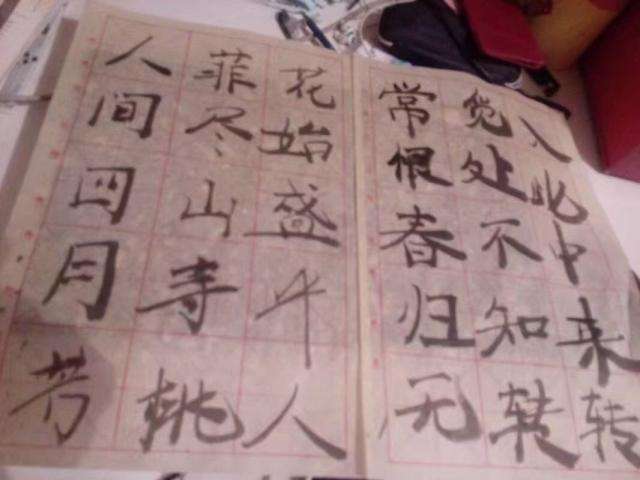 人间四月芳
菲尽山寺桃
花始盛开人
常恨春归无
觅处不知转
入此中来转